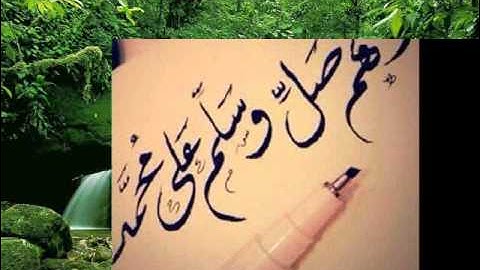 ـهم صَلِّ وَسَلِّم عَلى مُحمَّد